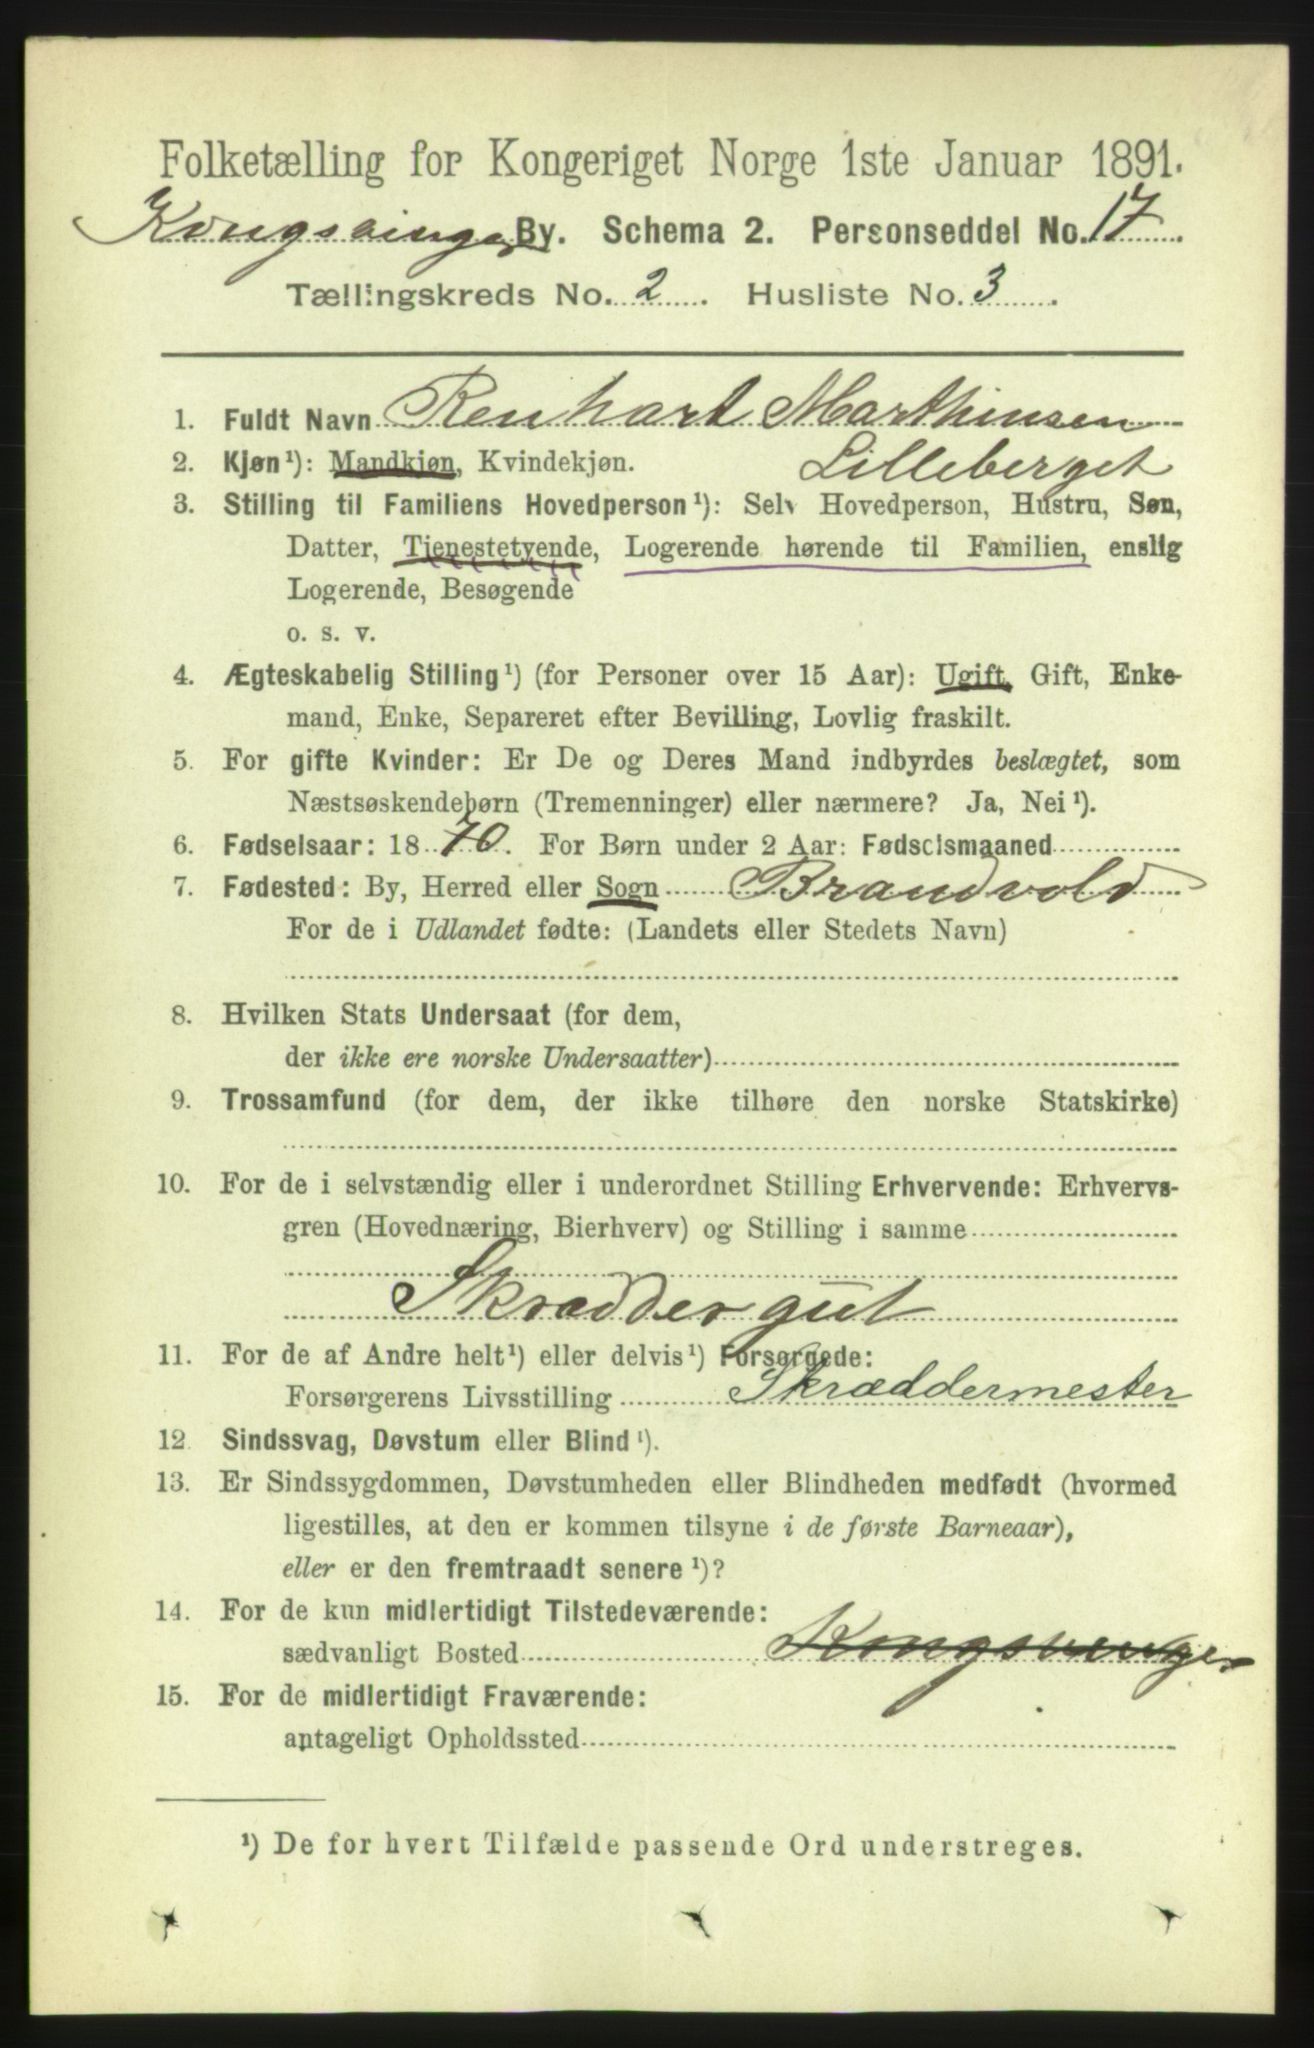 Folketælling for Kongeriget Norge 1ste Januar 1891.
Kongsvinger By. Schema 2. Personseddel No. 17
Tællingskreds No. 2. Husliste No. 3.
1. Fuldt Navn Renhart Marthinsen
Lilleberget
2. Kjøn¹): Mandkjøn, Kvindekjøn.
3. Stilling til Familiens Hovedperson¹): Selv Hovedperson, Hustru, Søn,
Datter, Tjenestetyende, Logerende hørende til Familien, enslig
Logerende, Besøgende
o. s. v.
4. Ægteskabelig Stilling¹) (for Personer over 15 Aar): Ugift, Gift, Enke-
mand, Enke, Separeret efter Bevilling, Lovlig fraskilt.
5. For gifte Kvinder: Er De og Deres Mand indbyrdes beslægtet, som
Næstsøskendebørn (Tremenninger) eller nærmere? Ja, Nei¹).
6. Fødselsaar: 1870. For Børn under 2 Aar: Fødselsmaaned
7. Fødested: By, Herred eller Sogn Brandvold
For de i Udlandet fødte: (Landets eller Stedets Navn)
8. Hvilken Stats Undersaat (for dem,
der ikke ere norske Undersaatter)
9. Trossamfund (for dem, der ikke tilhøre den norske Statskirke)
10. For de i selvstændig eller i underordnet Stilling Erhvervende: Erhvervs-
gren (Hovednæring, Bierhverv) og Stilling i samme
Skræddergut
11. For de af Andre helt¹) eller delvis¹) Forsørgede:
Forsørgerens Livsstilling Skræddermester
12. Sindssvag, Døvstum eller Blind¹).
13. Er Sindssygdommen, Døvstumheden eller Blindheden medfødt (hvormed
ligestilles, at den er kommen tilsyne i de første Barneaar),
eller er den fremtraadt senere¹)?
14. For de kun midlertidigt Tilstedeværende:
sædvanligt Bosted Kongsvinger
15. For de midlertidigt Fraværende:
antageligt Opholdssted
¹) De for hvert Tilfælde passende Ord understreges.